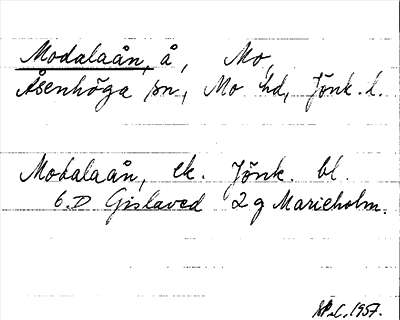 Modalaån, å, Mo,
Åsenhöga sn, Mo hd, Jönk. l.
Modalaån, ek. Jönk. bl.
6.D Gislaved 2g Marieholm.
1957.